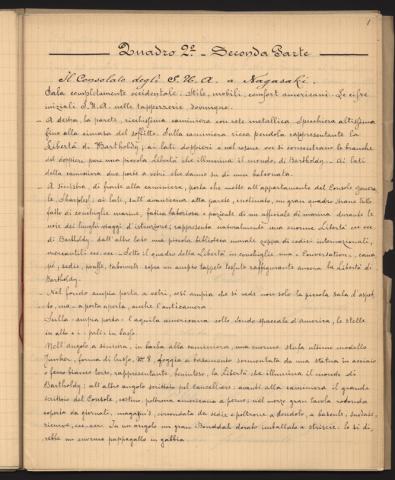 1
Quadro 2º - Seconda Parte
Il Consolato degli S.U.A. a Nagasaki.
Sala completamente occidentale. Stile, mobili, comfort americani. Le cifre
iniziali S.U.A. nelle tapperie dovunque.
A destra, la parete, ricchissima caminiera con rete metallica. Specchiera altissima
fino alla cimasa del soffitto. Sulla caminiera ricca pendola rappresentante la
Libertà di Bartholdy; ai lati doppieri e nel
dei doppieri pure una piccola Libertà che illumina il mondo, di Bartholdy. Ai lati
della caminiera due porte a vetri che danno su di una balconata.
A sinistra, di fronte alla caminiera, porta che mette all'appartamento del Console genera
le Sharpless; ai lati, sull'ammattonato alla parete, inclinato, un gran quadro strano tutto
fatto di conchiglie marine, fatica laboriosa e paziente di un ufficiale di marina durante le
noie dei lunghi viaggi d'istruzione; rappresenta naturalmente una enorme Libertà ecc. ecc.
di Bartholdy. dall'altro lato una piccola biblioteca murale zeppa di codici internazionali,
mercantili ecc. ecc. Sotto il quadro della Libertà in conchiglie una « Conversation », cana
pè, sedie, pouffs, tabourets sopra un ampio tappeto tessuto raffigurante ancora la Libertà di
Bartholdy.
Nel fondo ampia porta a vetri, così ampia che si vede non solo la piccola Sala d'aspet
to, ma a porta aperta, anche l'anticamera.
Sulla ampia porta: l'aquila americana sullo scudo speciale d'America, le stelle
in alto e i pali in basso.
Nell'angolo a sinistra, in barba alla caminiera, una enorme stufa ultimo modello
forma di lusso, Nº 8, foggia a basamento sormontata da una statua in acciaio
e ferro bianco terso, rappresentante, la Libertà che illumina il mondo di
Bartholdy; all'altro angolo scrittoio pel Cancelliere: avanti alla caminiera il grande
scrittoio del Console, cestino, poltrona americana a perno; nel mezzo gran tavola rotonda
coperta da giornali, magazin's, circondata da sedie e poltrone a dondolo, a
ecc. ecc. In un angolo un gran dorato imballato a striscie: lo si di
rebbe un enorme pappagallo in gabbia.